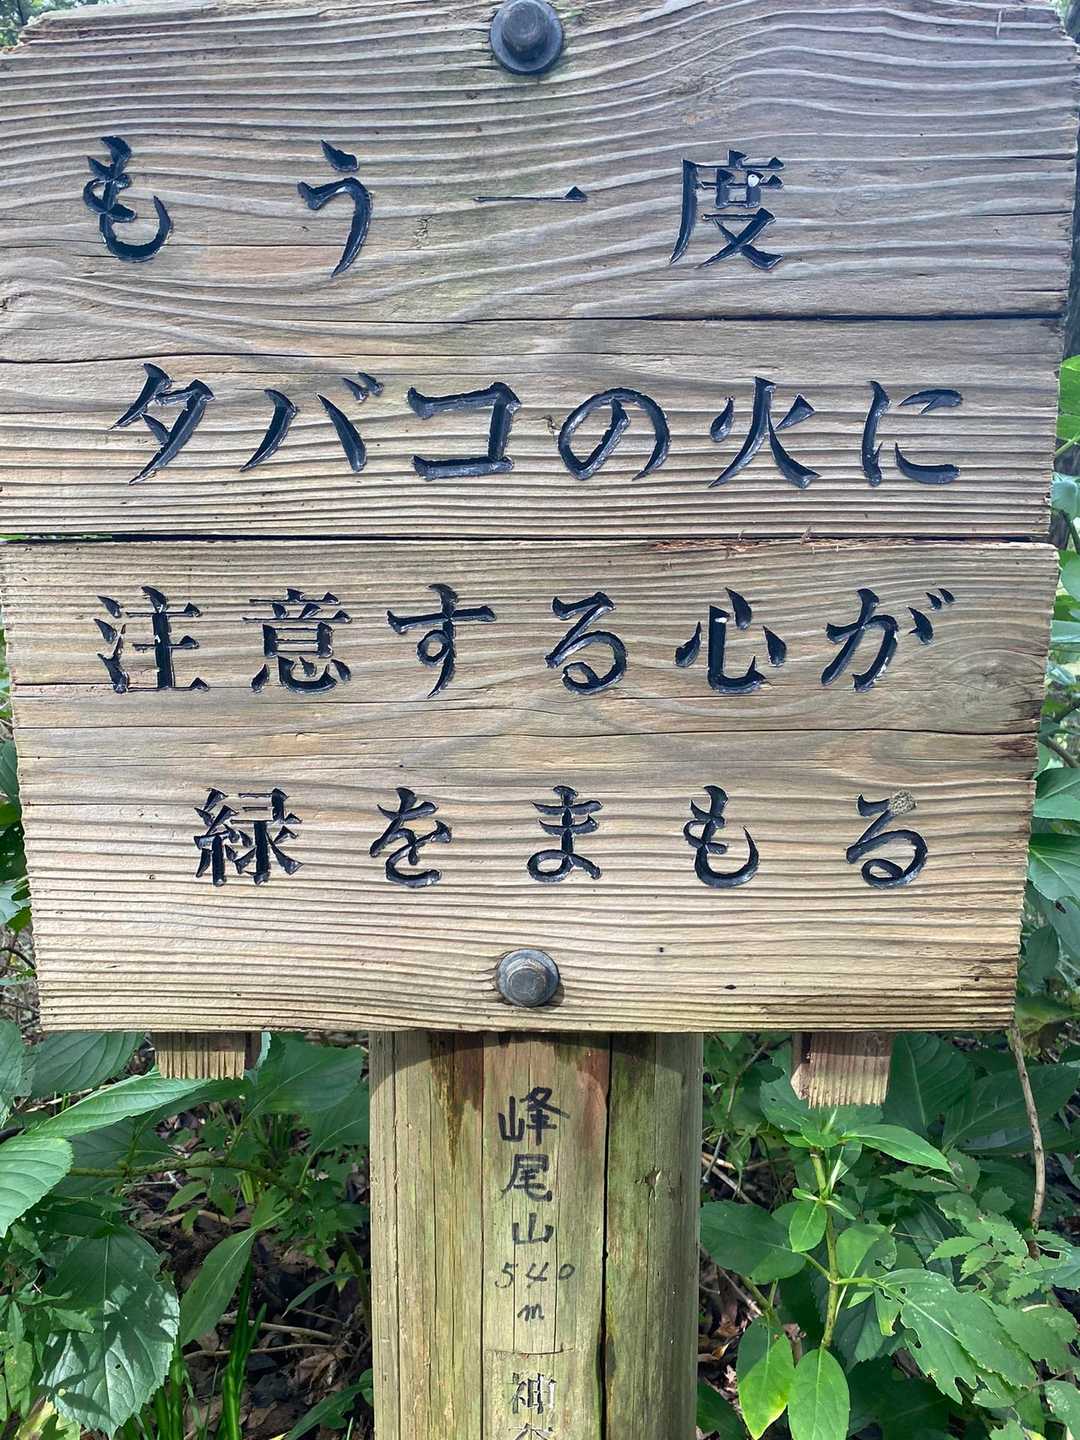 もう一度
タバコの火に
注意する心が
緑をまもる
峰尾山
540
m
神